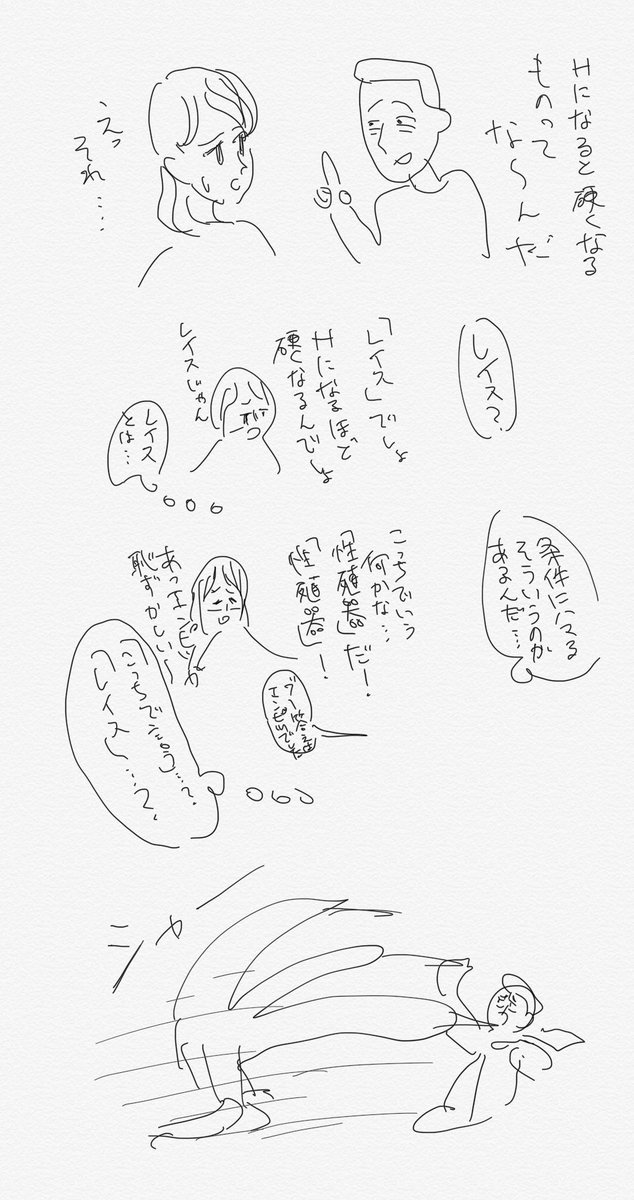 Hになると硬くなる
ものって
な〜んだ
えっ
それ…。
レイス？
「レイス」でしょ
Hになるほど
硬くなるんでしょ
レイスじゃん
レイス
とは…
条件に入る
そういうのが
あるんだ…
こっちでいう
何かな…
「性殖器」だ！
「性殖器」！
あっエンピツか
恥ずかしい〜
ブー答えは
エンピツでした
「こっちで言う」…？
「レイス」…？
シャー